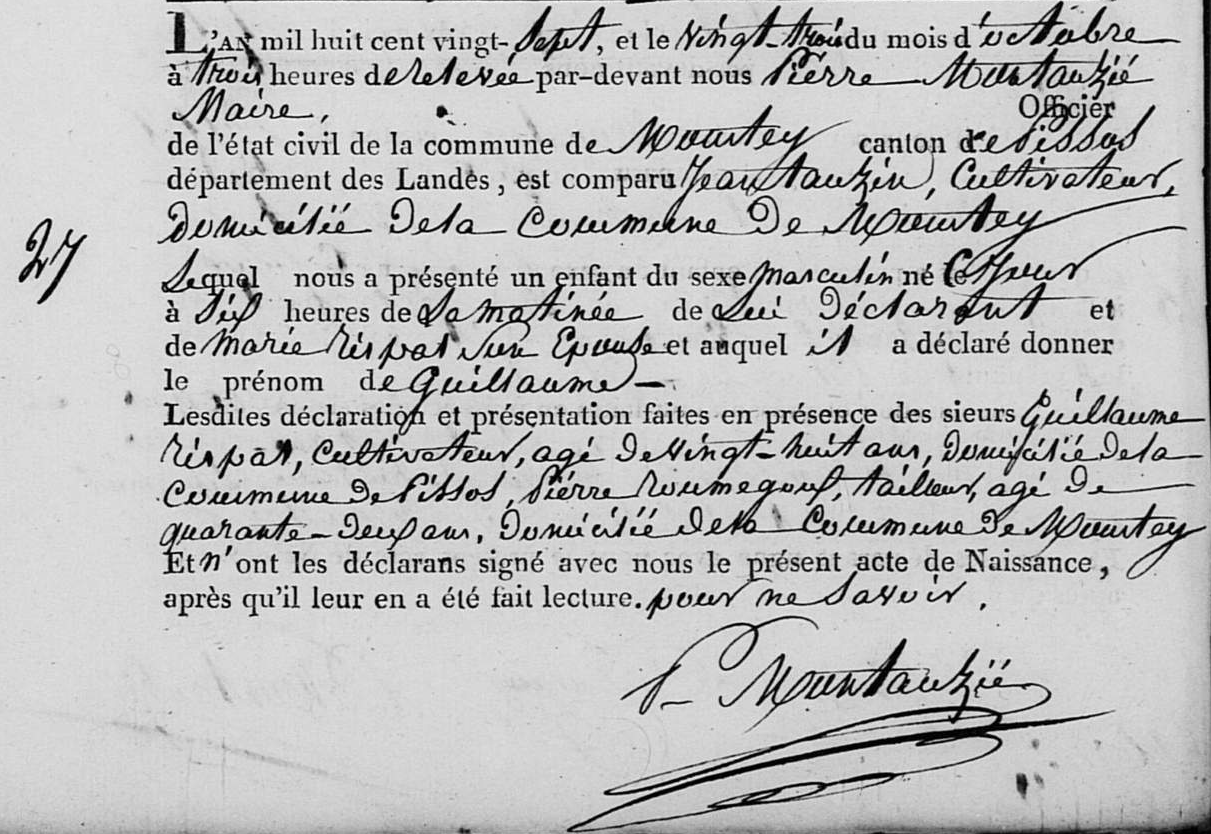 L'AN mil huit cent vingt-Sept, et le vingt-trois du mois d'octobre
à trois heures de relevée par-devant nous Pierre Mountauzié
Maire, Officier
de l'état civil de la commune de Moustey canton de Pissos
département des Landes, est comparu Jean Tauzin, Cultivateur,
domicilié de la Commune De Moustey
27
Lequel nous a présenté un enfant du sexe masculin né le Ce Jour
à Six heures de La matinée de Lui Déclarant et
de marie rispal Son Epouse et auquel il a déclaré donner
le prénom de Guillaume —
Lesdites déclaration et présentation faites en présence des sieurs Guillaume
rispal, cultivateur, agé de vingt-huit ans, domicilié de la
Commune de Pissos, Pierre roumegoux, tailleur, agé De
quarante-deux ans, Domicilié de la Commune de Moustey
Et n'ont les déclarans signé avec nous le présent acte de Naissance,
après qu'il leur en a été fait lecture. pour ne Savoir.
P. Mountauzié